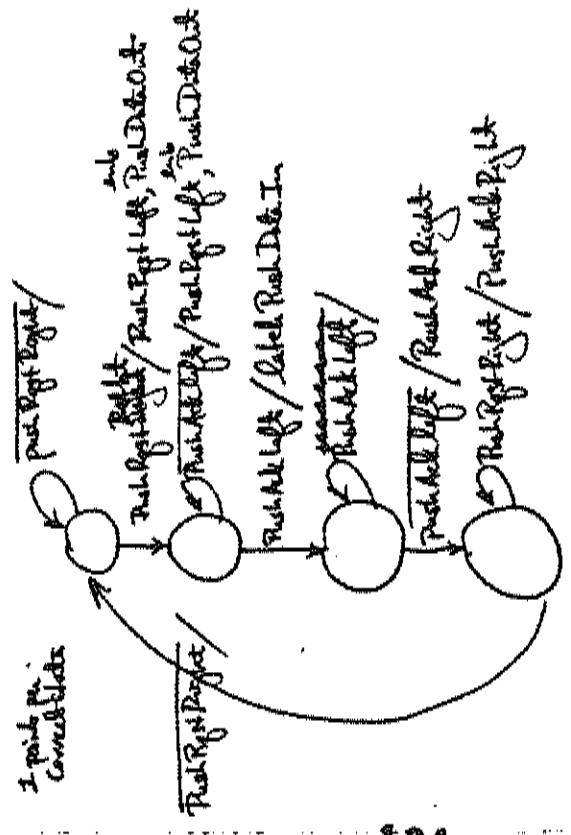 1 point per
correct state
Push Rqst Right /
Right
Push Rqst / Push Rqst Left, Push Data Out
Push Ack Left / Push Rqst Left, Push Data Out
Push Ack Left / latch Push Data In
Push Ack Left /
Push Ack Left / Push Ack Right
Push Rqst Right / Push Ack Right
Push Rqst Right /